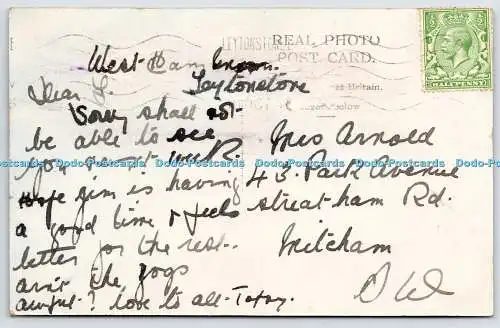 LEYTONSTONE
REAL PHOTO
POST CARD.
HALFPENNY
West Ham
Leytonstone
Dear
Sorry shall not
be able to see
you next week
Hope Jim is having
a good time & feels
better for the rest.
ain't the fogs
awful? love to all - Topsy.
Mrs Arnold
43 Park Avenue
Streatham Rd.
Mitcham
Dodo-Postcards Dodo-Postcards Dodo-Postcards Dodo-Postcards Dodo-Postcards Dodo-Postcards